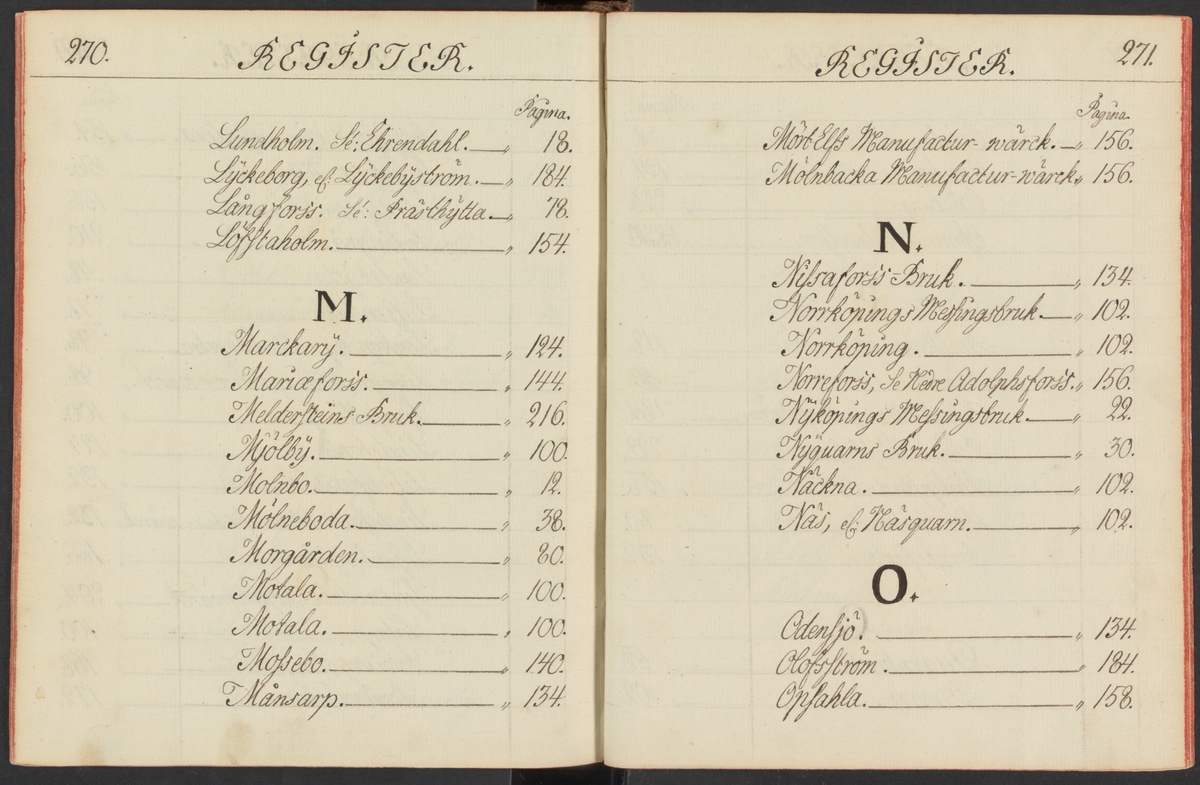 270.
REGISTER.
Pagina.
Lundholm. Sé: Ehrendahl. — „ 18.
Lÿckeborg, ef: Lÿckebÿström. — „ 184.
Långforss. Sé: Prästhÿtta. — „ 78.
Löfstaholm. — „ 154.
M.
Marckarÿ. — „ 124.
Mariæforss. — „ 144.
Meldersteins Bruk. — „ 216.
Mjölbÿ. — „ 100.
Molnbo. — „ 12.
Mölneboda. — „ 38.
Morgården. — „ 80.
Motala. — „ 100.
Motala. — „ 100.
Mossebo. — „ 140.
Månsarp. — „ 134.
REGISTER.
271.
Pagina.
Mört Elfs Manufactur-wärck. — „ 156.
Mölnbacka Manufactur-wärck „ 156.
N.
Nissaforss Bruk. — „ 134.
Norrköpings Messingsbruk. — „ 102.
Norrköping. — „ 102.
Norreforss, Se Nedre Adolphsforss. „ 156.
Nÿköpings Messingsbruk. — „ 22.
Nÿquarns Bruk. — „ 30.
Näckna. — „ 102.
Näs, ef: Näsquarn. — „ 102.
O.
Odensjö. — „ 134.
Olofsström. — „ 184.
Opsahla. — „ 158.